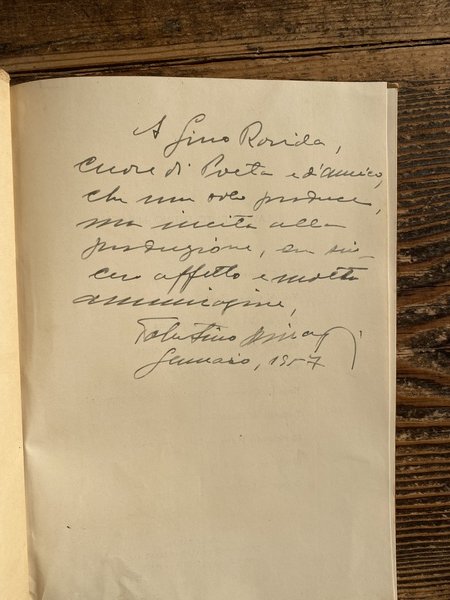 A Gino Rovida,
cuore di Poeta e d'amico,
che non solo produce,
ma incita alla
produzione, con sin-
cero affetto e molta
ammirazione,
Gennaio, 1957